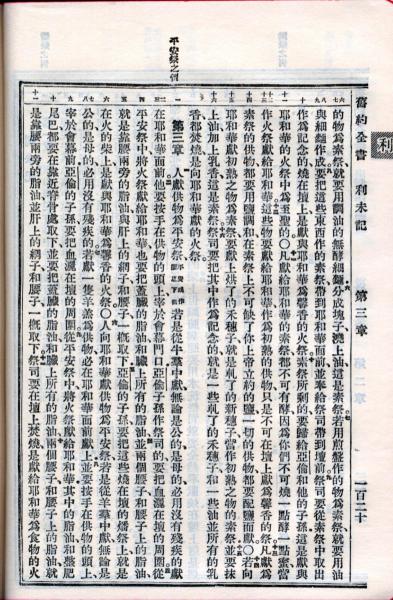 平安祭之例
利
舊約全書 利未記 第三章 一百二十
的物爲素祭就要用調油的無酵細麵分成塊子澆上油這是素祭若用煎盤作的素祭就要用油
與細麵作成要把這些東西作的素祭帶到耶和華面前並奉給祭司帶到壇前祭司要從素祭中取出
作爲記念的燒在壇上是獻與耶和華爲馨香的火祭素祭所剩的要歸給亞倫和他的子孫這是獻與
耶和華的火祭中爲至聖的〇凡獻給耶和華的素祭都不可有酵因爲你們不可燒一點酵一點蜜當
作火祭獻給耶和華這些物要獻給耶和華作爲初熟的供物只是不可在壇上獻爲馨香的祭凡獻爲
素祭的供物都要用鹽調和在素祭上不可缺了你上帝立約的鹽一切的供物都要配鹽而獻〇若向
耶和華獻初熟之物爲素祭要獻上烘了的禾穗子就是軋了的新穗子當作初熟之物的素祭並要抹
上油加上乳香這是素祭祭司要把其中作爲記念的就是一些軋了的禾穗子和一些油並所有的乳
香都焚燒是向耶和華獻的火祭
第三章 人獻供物爲平安祭若是從牛羣中獻無論是公的是母的必用沒有殘疾的獻
在耶和華面前他要按手在供物的頭上宰於會幕門口亞倫子孫作祭司的要把血灑在壇的周圍從
平安祭中將火祭獻給耶和華也要把蓋臟的脂油和臟上所有的脂油並兩個腰子和腰子上的脂油
就是靠腰兩旁的脂油與肝上的網子和腰子一概取下亞倫的子孫要把這些燒在壇的燔祭上就是
在火的柴上是獻與耶和華爲馨香的火祭〇人向耶和華獻供物爲平安祭若是從羊羣中獻無論是
公的是母的必用沒有殘疾的若獻一隻羊羔爲供物必在耶和華面前獻上並要按手在供物的頭上
宰於會幕前亞倫的子孫要把血灑在壇的周圍從平安祭中將火祭獻給耶和華其中的脂油和整肥
尾巴都要在靠近脊骨處取下並要把蓋臟的脂油和臟上所有的脂油兩個腰子和腰子上的脂油就
是靠腰兩旁的脂油並肝上的網子和腰子一概取下祭司要在壇上焚燒是獻給耶和華爲食物的火